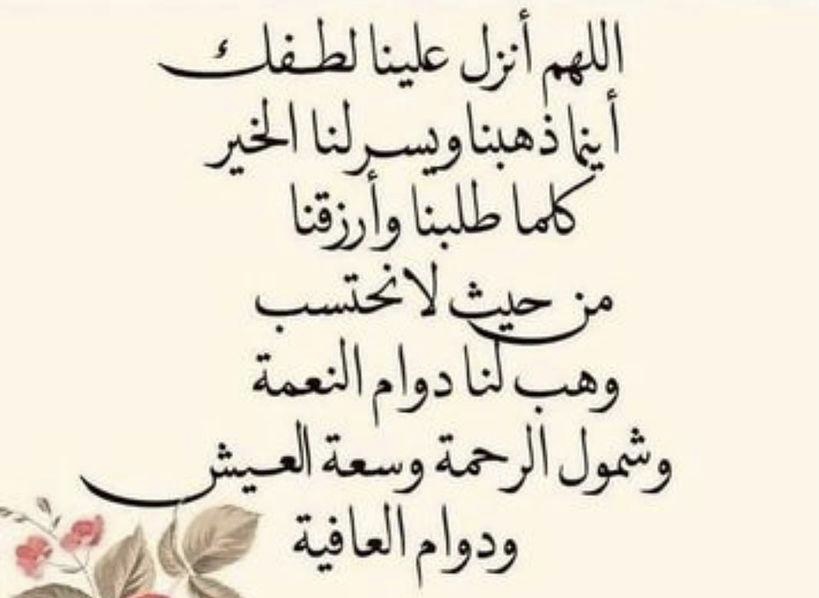 اللهم أنزل علينا لطفك
أينما ذهبنا ويسر لنا الخير
كلما طلبنا وأرزقنا
من حيث لا نحتسب
وهب لنا دوام النعمة
وشمول الرحمة وسعة العيش
ودوام العافية